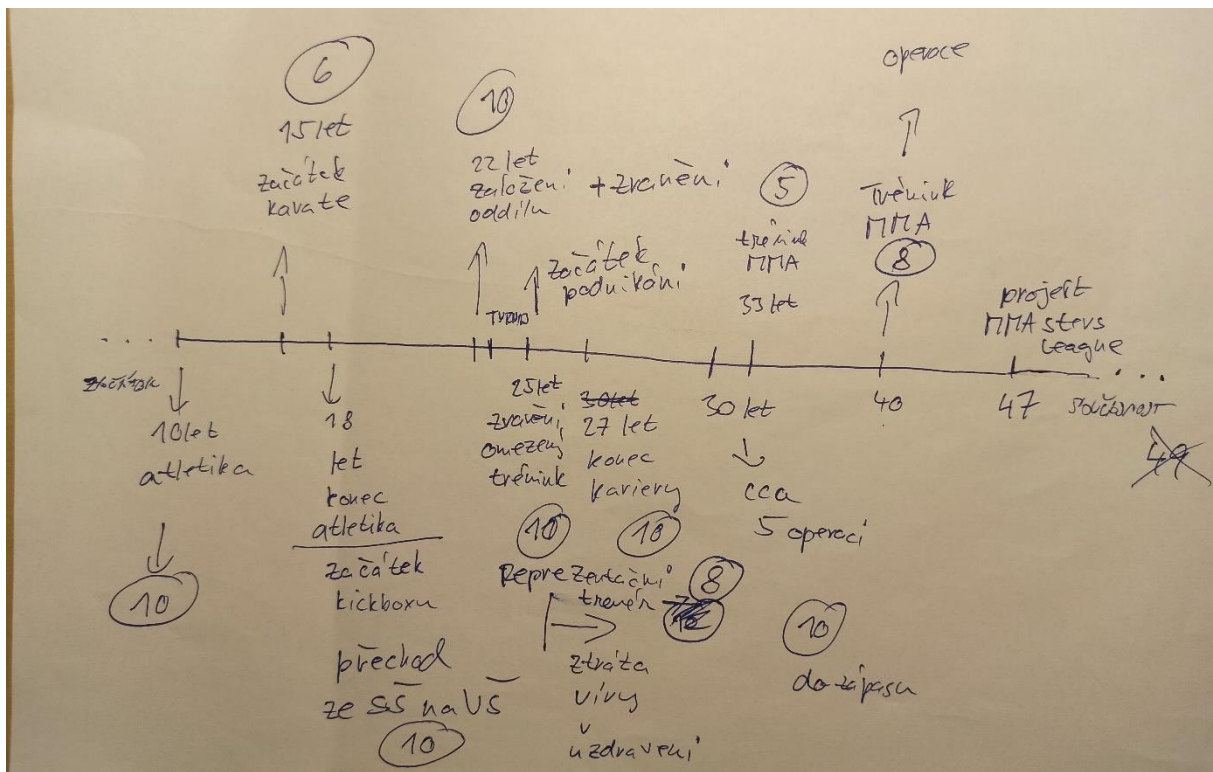 6
15 let
začátek
karate
10
22 let
založení
oddílu
+ zranění
začátek
podnikání
5
trénink
MMA
33 let
operace
Trénink
MMA
8
projekt
MMA stars
League
. . .
začátek
10 let
atletika
10
18
let
konec
atletika
začátek
kickboxu
přechod
ze SŠ na VŠ
10
25 let
zranění,
omezený
trénink
10
30 let
27 let
konec
kariery
10
Reprezentační
trenér
8
ztráta
víry
v
uzdravení
30 let
cca
5 operací
10
do zápasu
40
47
současnost
. . .
49